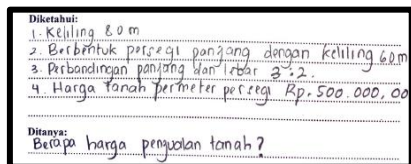 Diketahui:
1. Keliling 80 m
2. Berbentuk persegi panjang dengan keliling 60m
3. Perbandingan panjang dan lebar 3:2.
4. Harga tanah permeter persegi Rp. 500.000,00
Ditanya:
Berapa harga penjualan tanah?